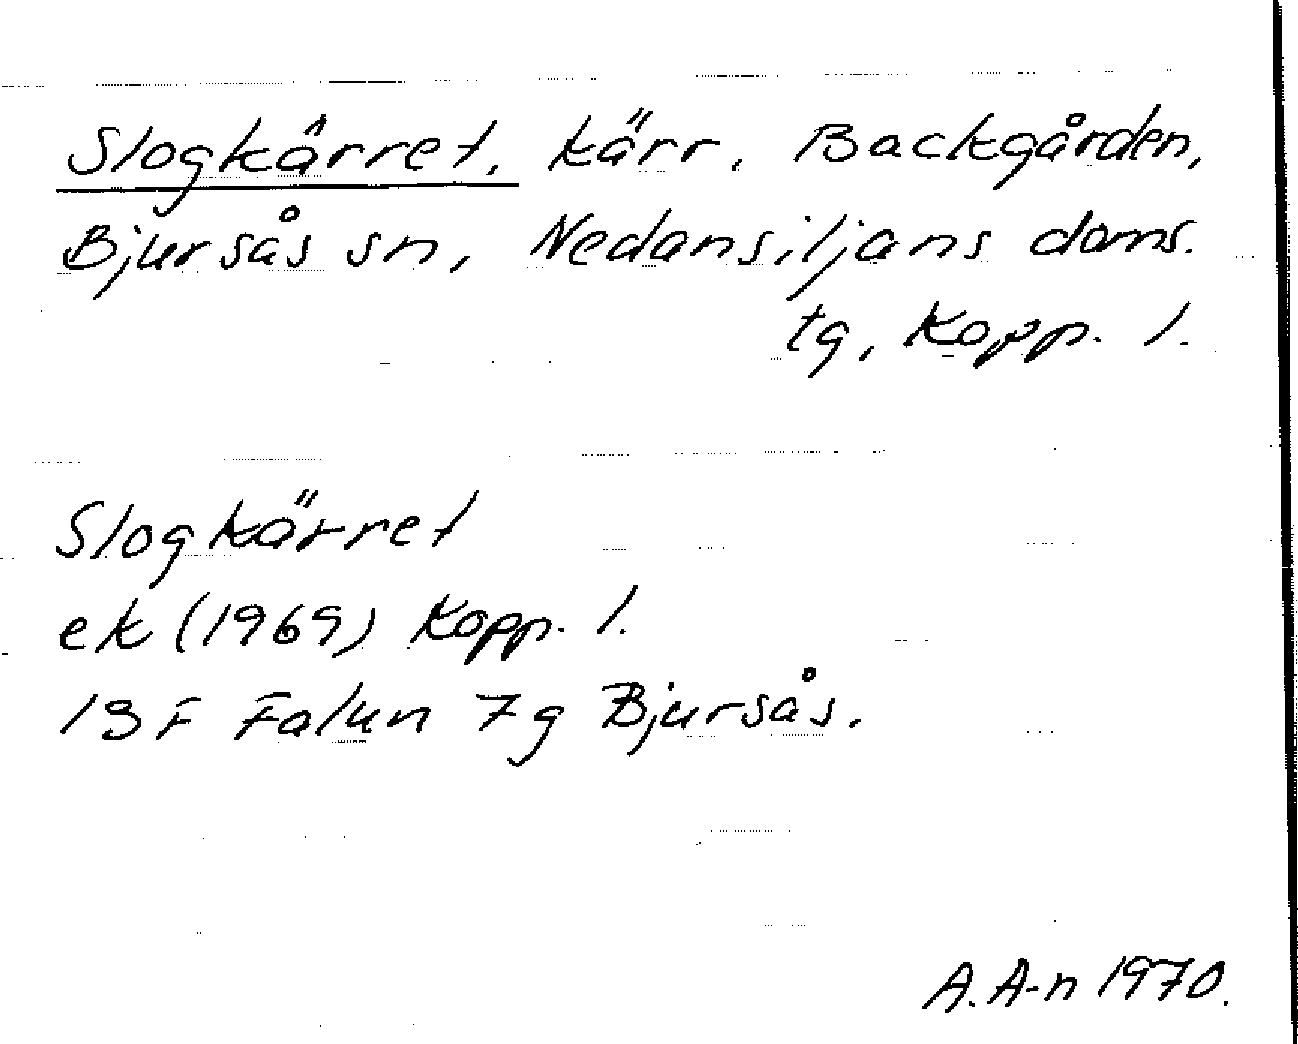 Slogkärret, kärr, Backgården,
Bjursås sn, Nedansiljans doms.
tg, Kopp. l.
Slogkärret
ek (1969) Kopp. l.
13F Falun 7g Bjursås.
A. A-n 1970.